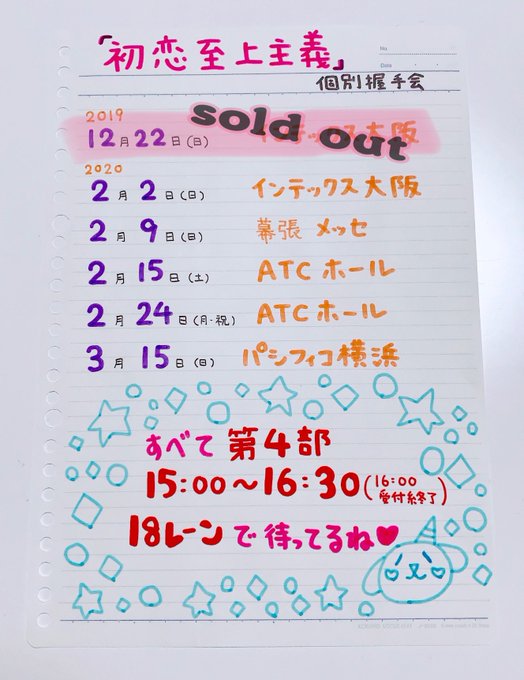 「初恋至上主義」
No.
Date
個別握手会
2019
12月22日(日) インテックス大阪
sold out
2020
2月2日(日) インテックス大阪
2月9日(日) 幕張メッセ
2月15日(土) ATCホール
2月24日(月・祝) ATCホール
3月15日(日) パシフィコ横浜
すべて第4部
15:00〜16:30(16:00
受付終了)
18レーンで待ってるね♥